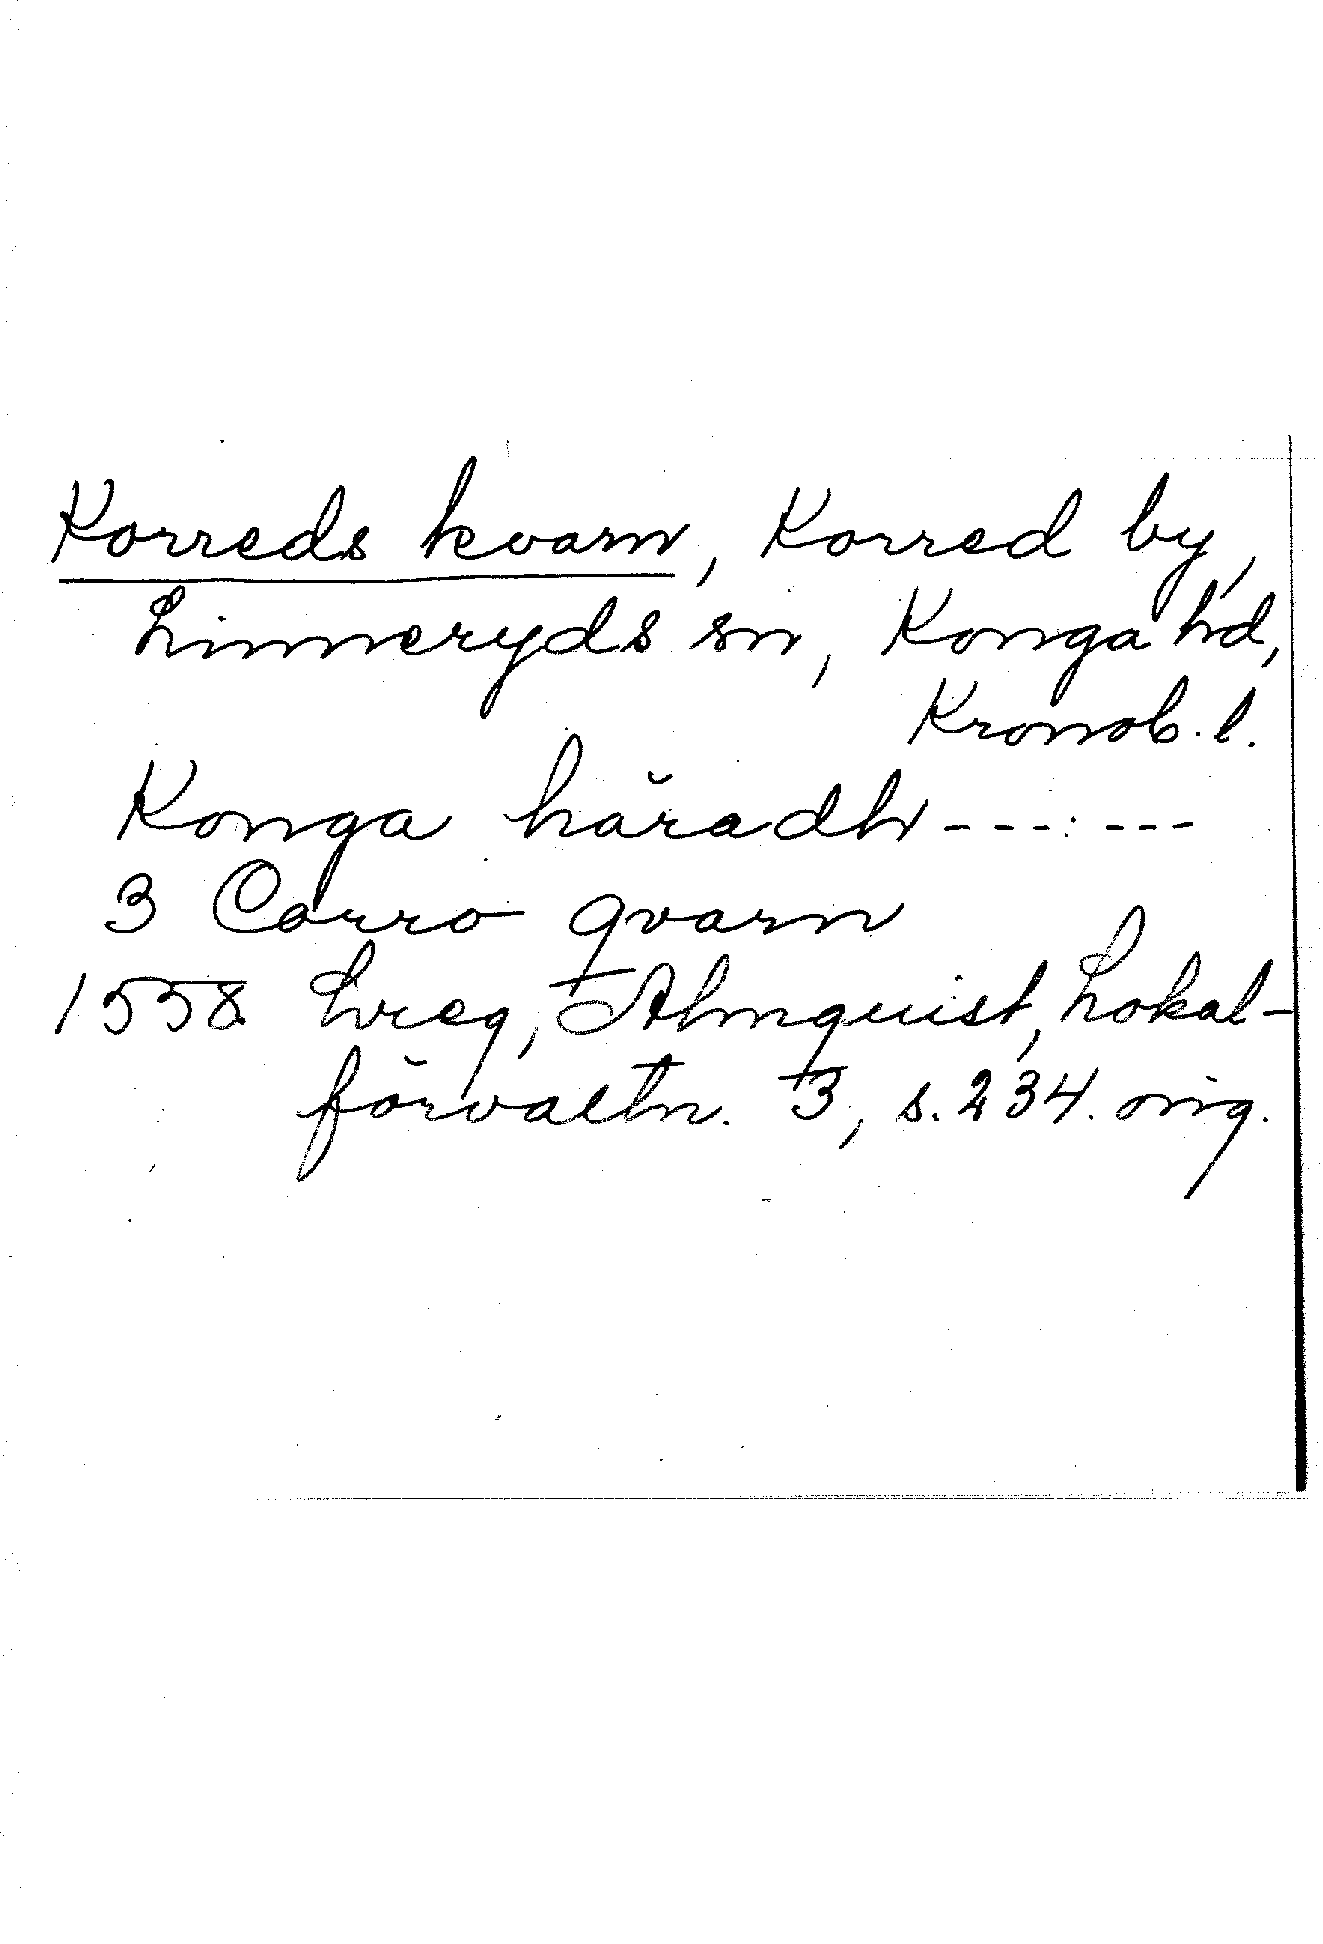 Korreds kvarn, Korred by,
Linneryds sn, Konga hd,
Kronob. l.
Konga häradh --- : ---
3 Corro qvarn
1558 Lvreg, Almquist, Lokal-
förvaltn. 3, s. 234. orig.